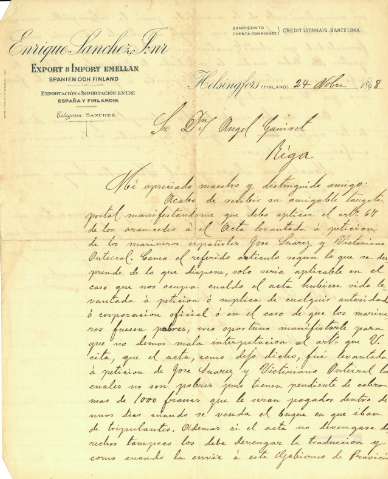 Enrique Sanchez, Fnr
EXPORT & IMPORT EMELLAN
SPANIEN OCH FINLAND
EXPORTACIÓN & IMPORTACIÓN ENTRE
ESPAÑA Y FINLANDIA
Telegrams: SANCHEZ
CREDIT LYONNAIS, BARCELONA
Helsingfors (FINLAND) 24 Nobre 1898
Sr Dn Angel Ganivet
Riga
Mi apreciado maestro y distinguido amigo:
Acabo de recibir su amigable tarjeta
postal manifestandome que debo aplicar el artº 64
de los aranceles á el Acta levantada á peticion
de los marineros españoles Jose Suarez y Victoriano
Como el referido articulo segun lo que se des
prende de lo que dispone, solo seria aplicable en el
caso que nos ocupa cuando el acta hubiese sido le
vantada á peticion ó suplica de cualquier autoridad
ó corporacion oficial ó en el caso de que los marine
ros fuesen pobres, creo oportuno manifestarle para
que no demos mala interpretacion al artº que V
cita, que el acta, como dejo dicho, fué levantada
á peticion de Jose Suarez y Victoriano los
cuales no son pobres pues tienen pendiente de cobro
mas de 1000 francos que le seran pagados dentro de
unos dias cuando se venda el buque en que iban
de tripulantes. Ademas si el acta no devengase de
rechos tampoco los debe devengar la traduccion y
como cuando la envie á este Gobierno de Provincia